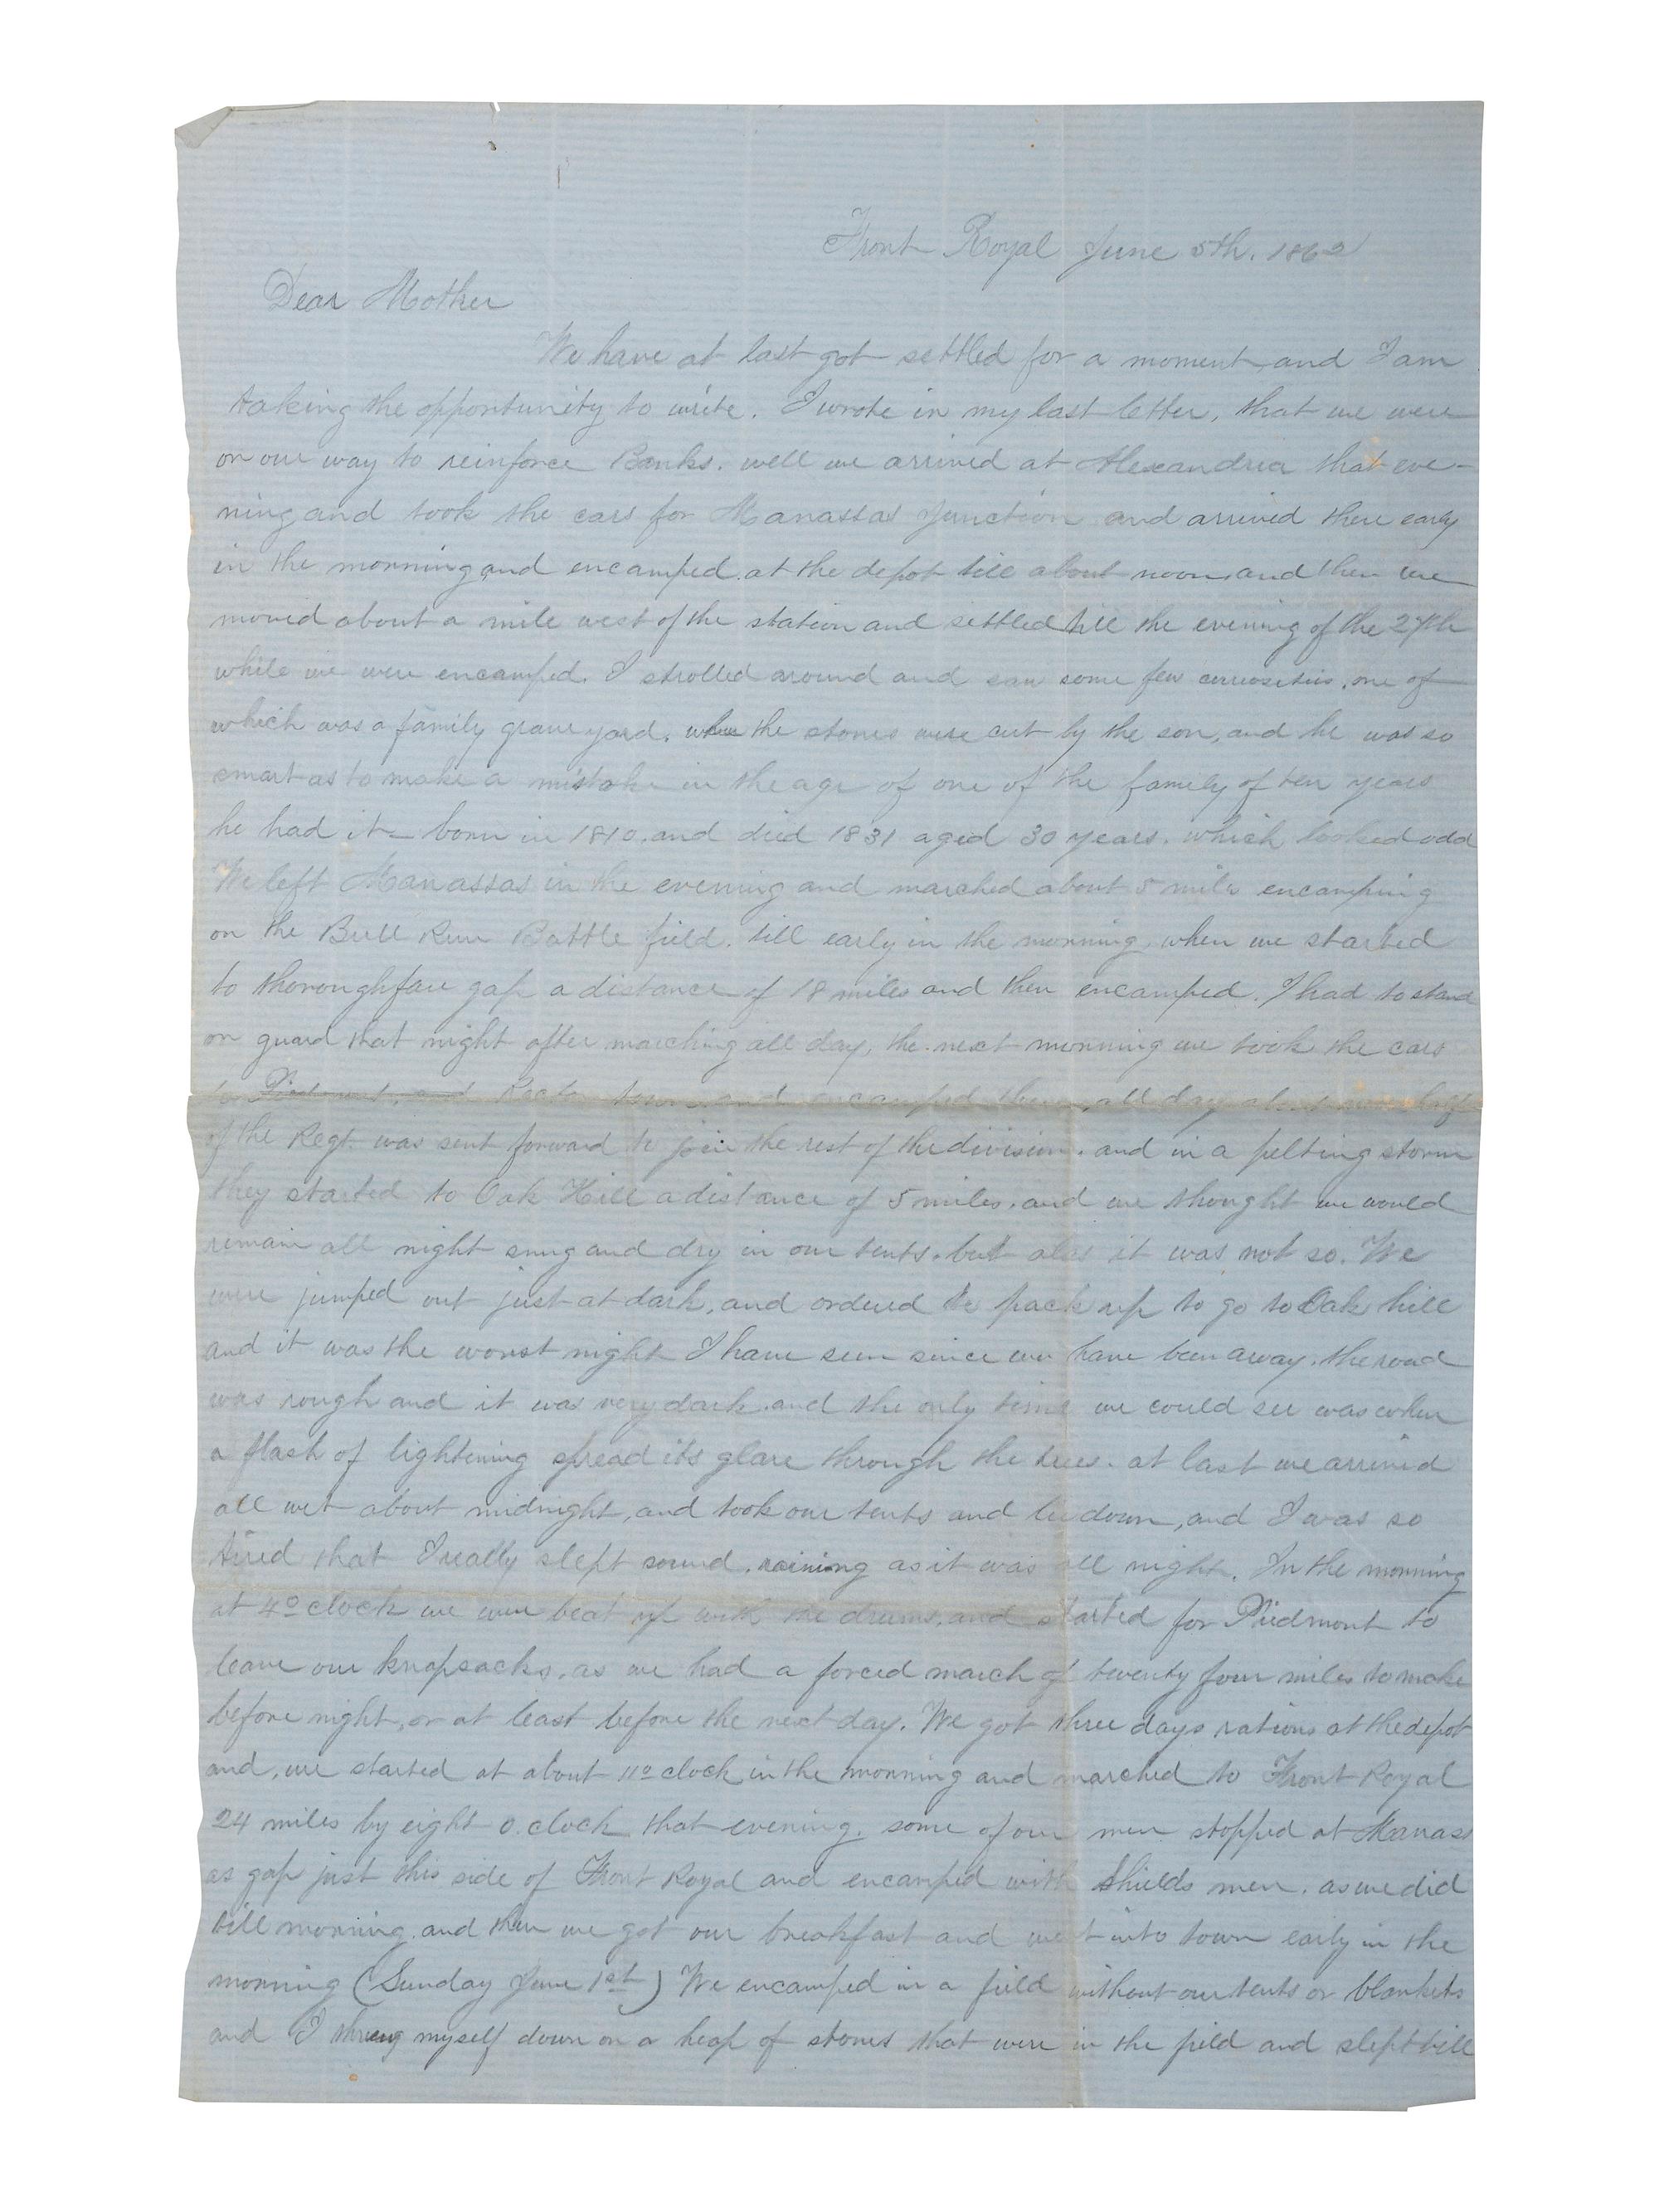 Front Royal June 5th. 1862
Dear Mother
We have at last got settled for a moment and I am
taking the opportunity to write. I wrote in my last letter, that we were
on our way to reinforce Banks. well we arrived at Alexandria that eve-
ning and took the cars for Manassas Junction and arrived there early
in the morning and encamped at the depot till about noon and then we
moved about a mile west of the station and settled till the evening of the 27th
while we were encamped. I strolled around and saw some few curiosities, one of
which was a family grave yard. where the stones were cut by the son, and he was so
smart as to make a mistake in the age of one of the family of ten years
he had it born in 1810. and died 1831 aged 30 years. which looked odd
We left Manassas in the evening and marched about 5 miles encamping
on the Bull Run Battle field. till early in the morning, when we started
to thoroughfare gap a distance of 18 miles and then encamped. I had to stand
on guard that night after marching all day, the next morning we took the cars
to Piedmont, and Rector town and encamped there, all day half
of the Regt. was sent forward to join the rest of the division. and in a pelting storm
they started to Oak Hill a distance of 5 miles. and we thought we would
remain all night snug and dry in our tents. but alas it was not so. We
were jumped out just at dark, and ordered to pack up to go to Oak hill
and it was the worst night I have seen since we have been away. the road
was rough and it was very dark. and the only time we could see was when
a flash of lightening spread its glare through the trees. at last we arrived
all wet about midnight, and took our tents and lie down, and I was so
tired that I really slept sound. raining as it was all night. In the morning
at 4 o clock we were beat up with the drums. and started for Piedmont to
leave our knapsacks. as we had a forced march of twenty four miles to make
before night, or at least before the next day. We got three days rations at the depot
and, we started at about 11 o clock in the morning and marched to Front Royal
24 miles by eight o.clock that evening. some of our men stopped at Manass
as gap just this side of Front Royal and encamped with Shields men. as we did
till morning. and then we got our breakfast and went into town early in the
morning (Sunday June 1st) We encamped in a field without our tents or blankets
and I threw myself down on a heap of stones that were in the field and slept till